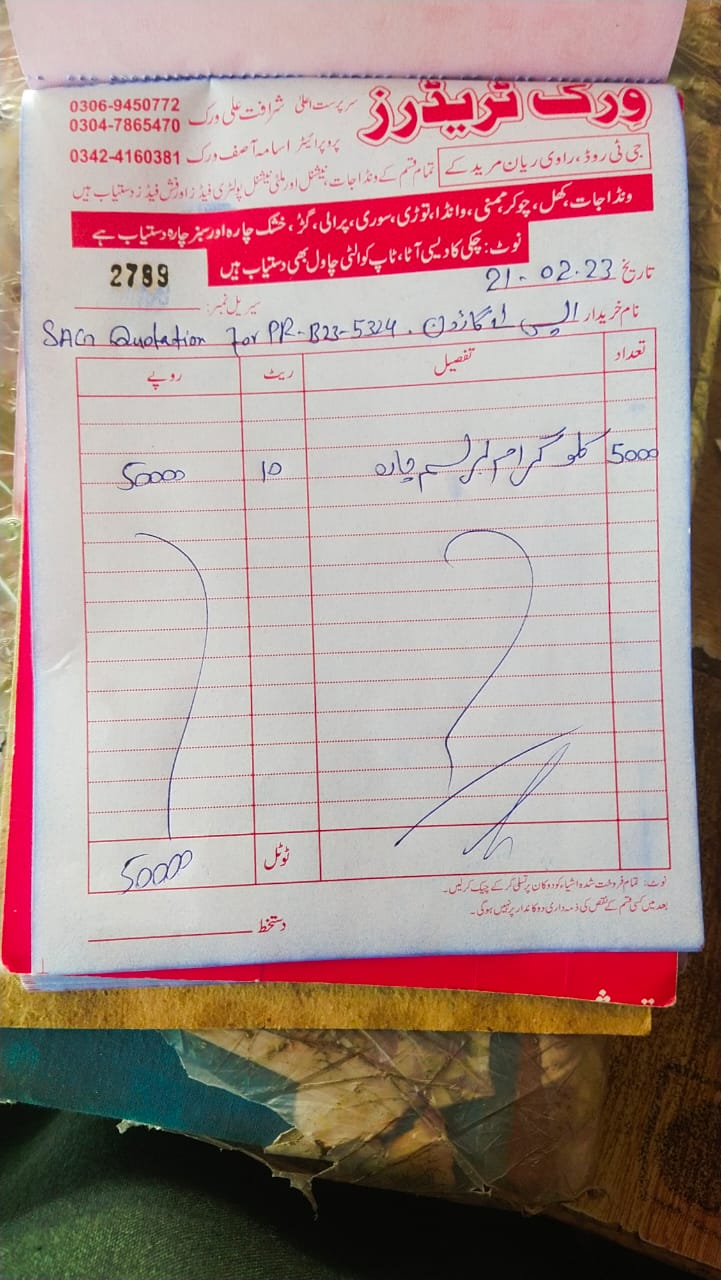 ورک ٹریڈرز
سرپرست اعلیٰ شرافت علی ورک 0306-9450772
0304-7865470
پروپرائیٹر اسامہ آصف ورک 0342-4160381
جی ٹی روڈ، راوی ریان مریدکے
تمام قسم کے ونڈا جات، نیشنل اور ملٹی نیشنل پولٹری فیڈز اور فش فیڈز دستیاب ہیں
ونڈا جات، کھل، چوکر، وانڈا، توڑی، سوری، پرالی، گڑ، خشک چارہ اور سبز چارہ دستیاب ہے
نوٹ: چکی کا دیسی آٹا، ٹاپ کوالٹی چاول بھی دستیاب ہیں
تاریخ 21-02-23
2789
سیریل نمبر:
نام خریدار
SAG Quotation for PR-B23-5324.
تعداد تفصیل ریٹ روپے
5000 کلو گرام چارہ 10 50000
ٹوٹل 50000
نوٹ: تمام فروخت شدہ اشیاء کو دوکان پر تسلی کر کے چیک کر لیں۔
بعد میں کسی قسم کے نقص کی ذمہ داری دوکاندار پر نہیں ہوگی۔
دستخط